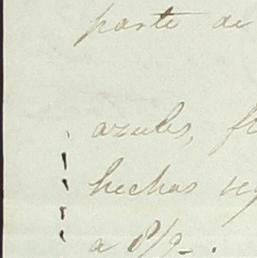 parte de
azules, fr
hechas seg
a P/2-.